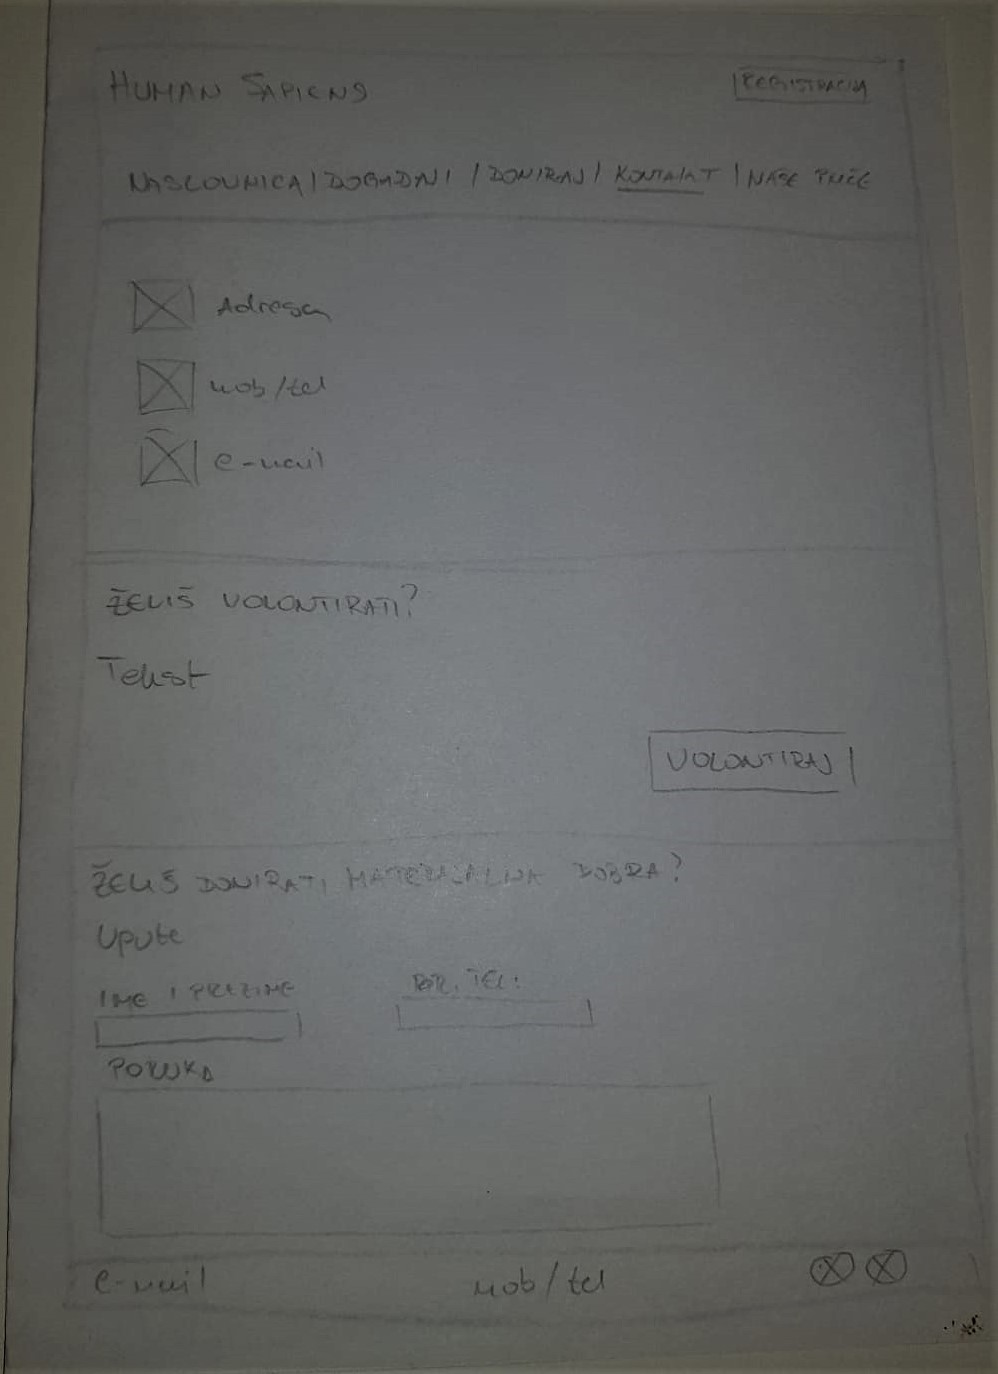 HUMAN SAPIENS
REGISTRACIJA
NASLOVNICA | DOGAĐAJI | DONIRAJ | KONTAKT | NAŠE PRIČE
Adresa
mob/tel
e-mail
ŽELIŠ VOLONTIRATI?
Tekst
VOLONTIRAJ
ŽELIŠ DONIRATI MATERIJALNA DOBRA?
Upute
IME I PREZIME
BR. TEL:
PORUKA
e-mail mob/tel